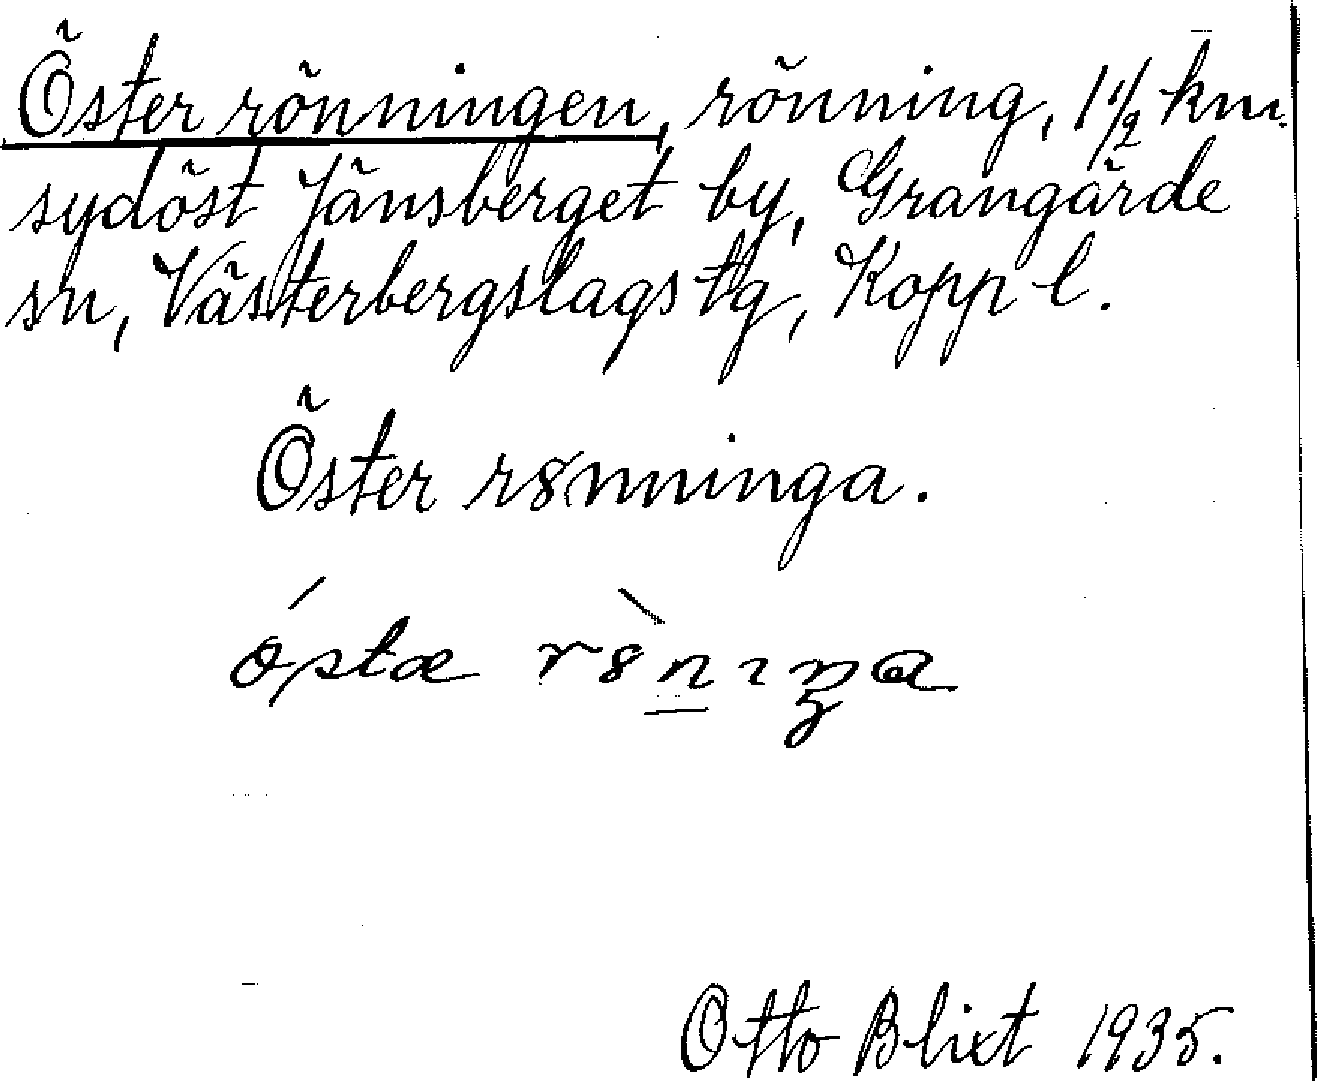 Öster rönningen, rönning, 1 1/2 km.
sydöst Jänsberget by, Grangärde
sn, Västerbergslags tg, Kopp l.
Öster rönninga.
Otto Blixt 1935.